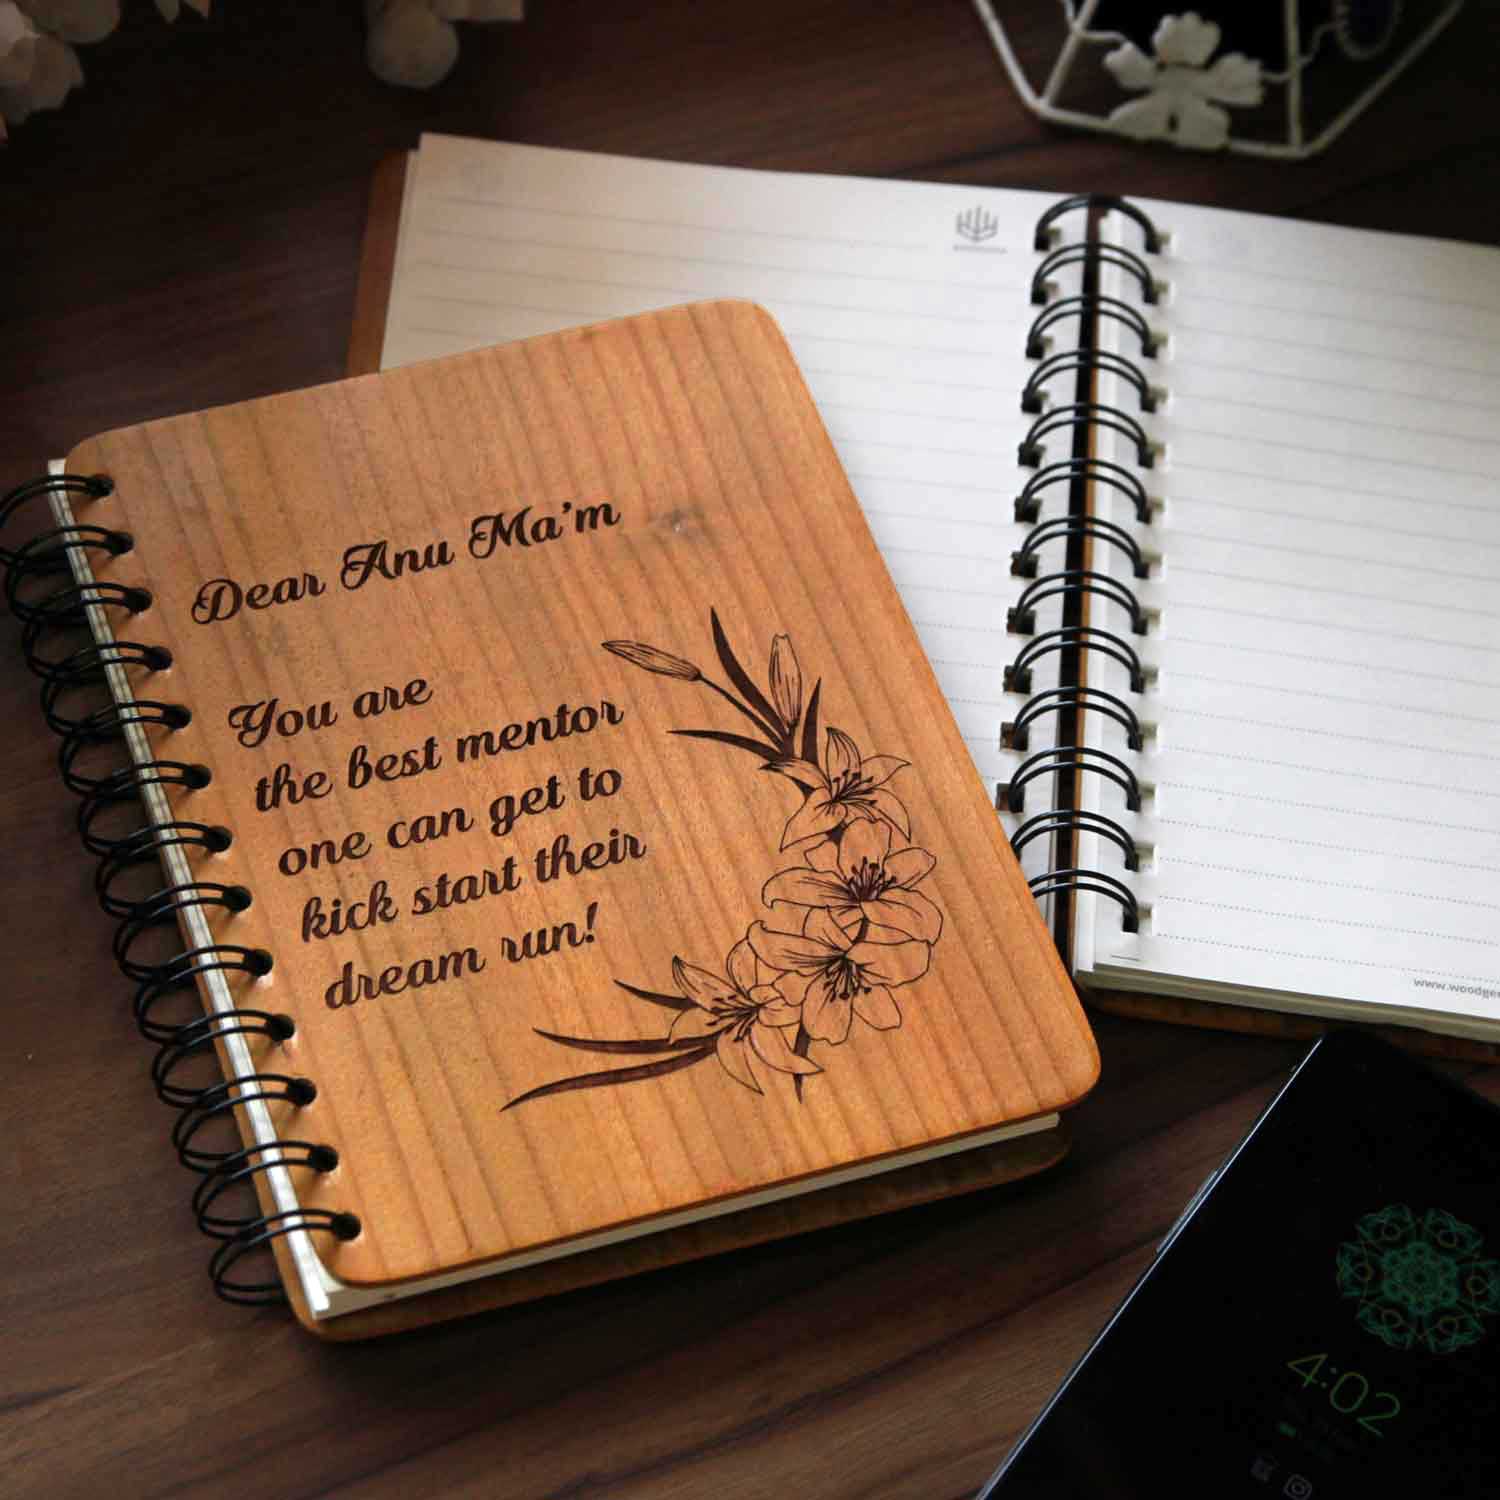 Dear Anu Ma'm
You are
the best mentor
one can get to
kick start their
dream run!
4:02